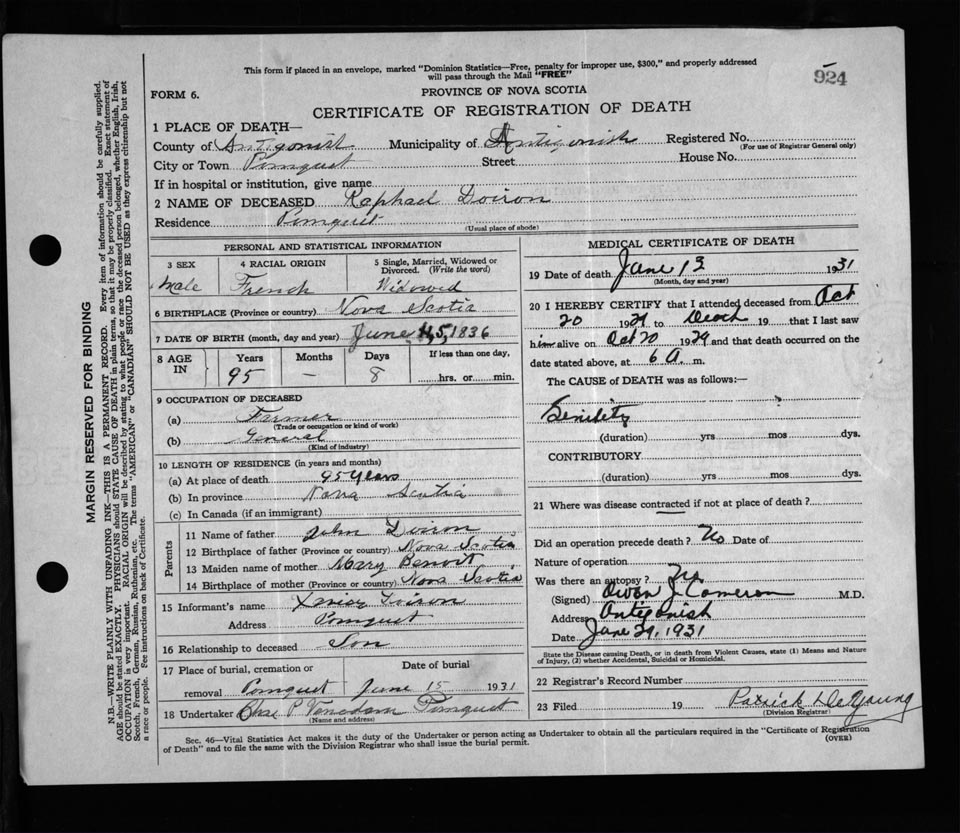 This form if placed in an envelope, marked "Dominion Statistics—Free, penalty for improper use, $300," and properly addressed
will pass through the Mail "FREE"
924
FORM 6.
PROVINCE OF NOVA SCOTIA
CERTIFICATE OF REGISTRATION OF DEATH
1 PLACE OF DEATH—
County of Antigonish Municipality of Antigonish Registered No.
(For use of Registrar General only)
City or Town Pomquet Street House No.
If in hospital or institution, give name
2 NAME OF DECEASED Raphael Doiron
Residence Pomquet
(Usual place of abode)
PERSONAL AND STATISTICAL INFORMATION
3 SEX 4 RACIAL ORIGIN 5 Single, Married, Widowed or
Divorced. (Write the word)
Male French Widowed
6 BIRTHPLACE (Province or country) Nova Scotia
7 DATE OF BIRTH (month, day and year) June 5, 1836
8 AGE IN Years Months Days If less than one day,
95 — 8 hrs. or min.
9 OCCUPATION OF DECEASED
(a) Farmer
(Trade or occupation or kind of work)
(b) General
(Kind of industry)
10 LENGTH OF RESIDENCE (in years and months)
(a) At place of death 95 years
(b) In province Nova Scotia
(c) In Canada (if an immigrant)
Parents
11 Name of father John Doiron
12 Birthplace of father (Province or country) Nova Scotia
13 Maiden name of mother Mary Benoit
14 Birthplace of mother (Province or country) Nova Scotia
15 Informant's name Xavier Doiron
Address Pomquet
16 Relationship to deceased Son
17 Place of burial, cremation or Date of burial
removal Pomquet June 15 1931
18 Undertaker P Pomquet
(Name and address)
MEDICAL CERTIFICATE OF DEATH
19 Date of death June 13 1931
(Month, day and year)
20 I HEREBY CERTIFY that I attended deceased from Oct
20 1929 to Death 19 that I last saw
him alive on Oct 20 1929 and that death occurred on the
date stated above, at 6 A. m.
The CAUSE of DEATH was as follows:—
Senility
(duration) yrs mos dys.
CONTRIBUTORY
(duration) yrs mos dys.
21 Where was disease contracted if not at place of death?
Did an operation precede death? No Date of
Nature of operation
Was there an autopsy? No
(Signed) Owen J. Cameron M.D.
Address Antigonish
Date June 29, 1931
State the Disease causing Death, or in death from Violent Causes, state (1) Means and Nature
of Injury, (2) whether Accidental, Suicidal or Homicidal.
22 Registrar's Record Number
23 Filed 19 Patrick DeYoung
(Division Registrar)
Sec. 46—Vital Statistics Act makes it the duty of the Undertaker or person acting as Undertaker to obtain all the particulars required in the "Certificate of Registration
of Death" and to file the same with the Division Registrar who shall issue the burial permit.
(OVER)
MARGIN RESERVED FOR BINDING
N.B.—WRITE PLAINLY WITH UNFADING INK—THIS IS A PERMANENT RECORD. Every item of information should be carefully supplied.
AGE should be stated EXACTLY. PHYSICIANS should STATE CAUSE OF DEATH in plain terms, so that it may be properly classified. Exact statement of
OCCUPATION is very important. RACIAL ORIGIN will be described by stating to what people or race the deceased person belonged, whether English, Irish,
Scotch, French, German, Russian, Ruthenian, etc. The terms "AMERICAN" or "CANADIAN" SHOULD NOT BE USED as they express citizenship but not
a race or people. See instructions on back of Certificate.